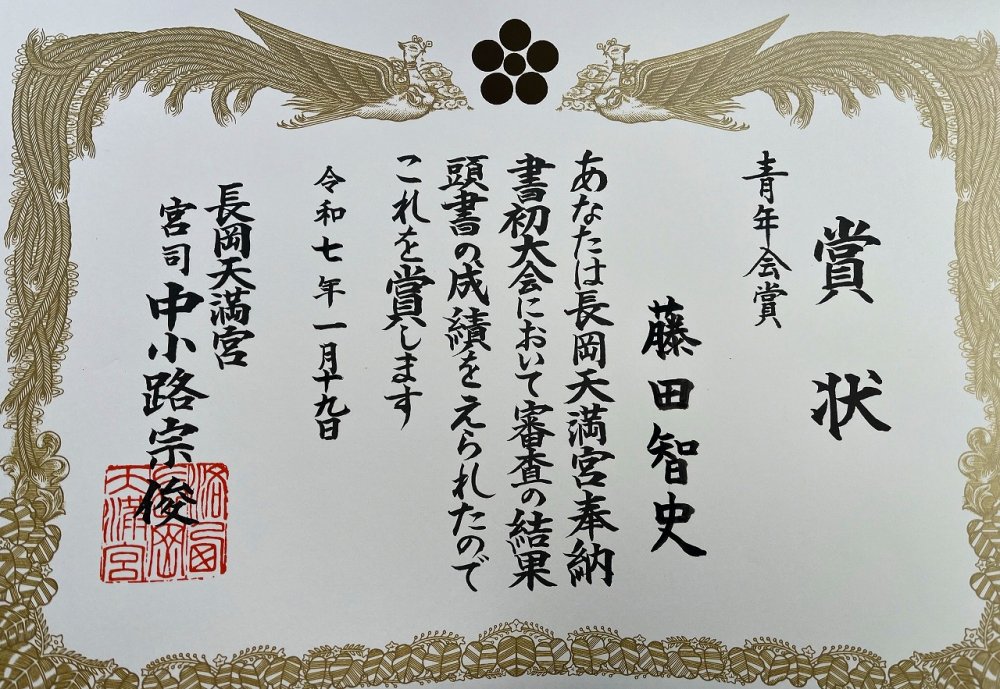 賞状
青年会賞
藤田智史
あなたは長岡天満宮奉納
書初大会において審査の結果
頭書の成績をえられたので
これを賞します
令和七年一月十九日
長岡天満宮
宮司 中小路宗俊
洛西
長岡
天満宮